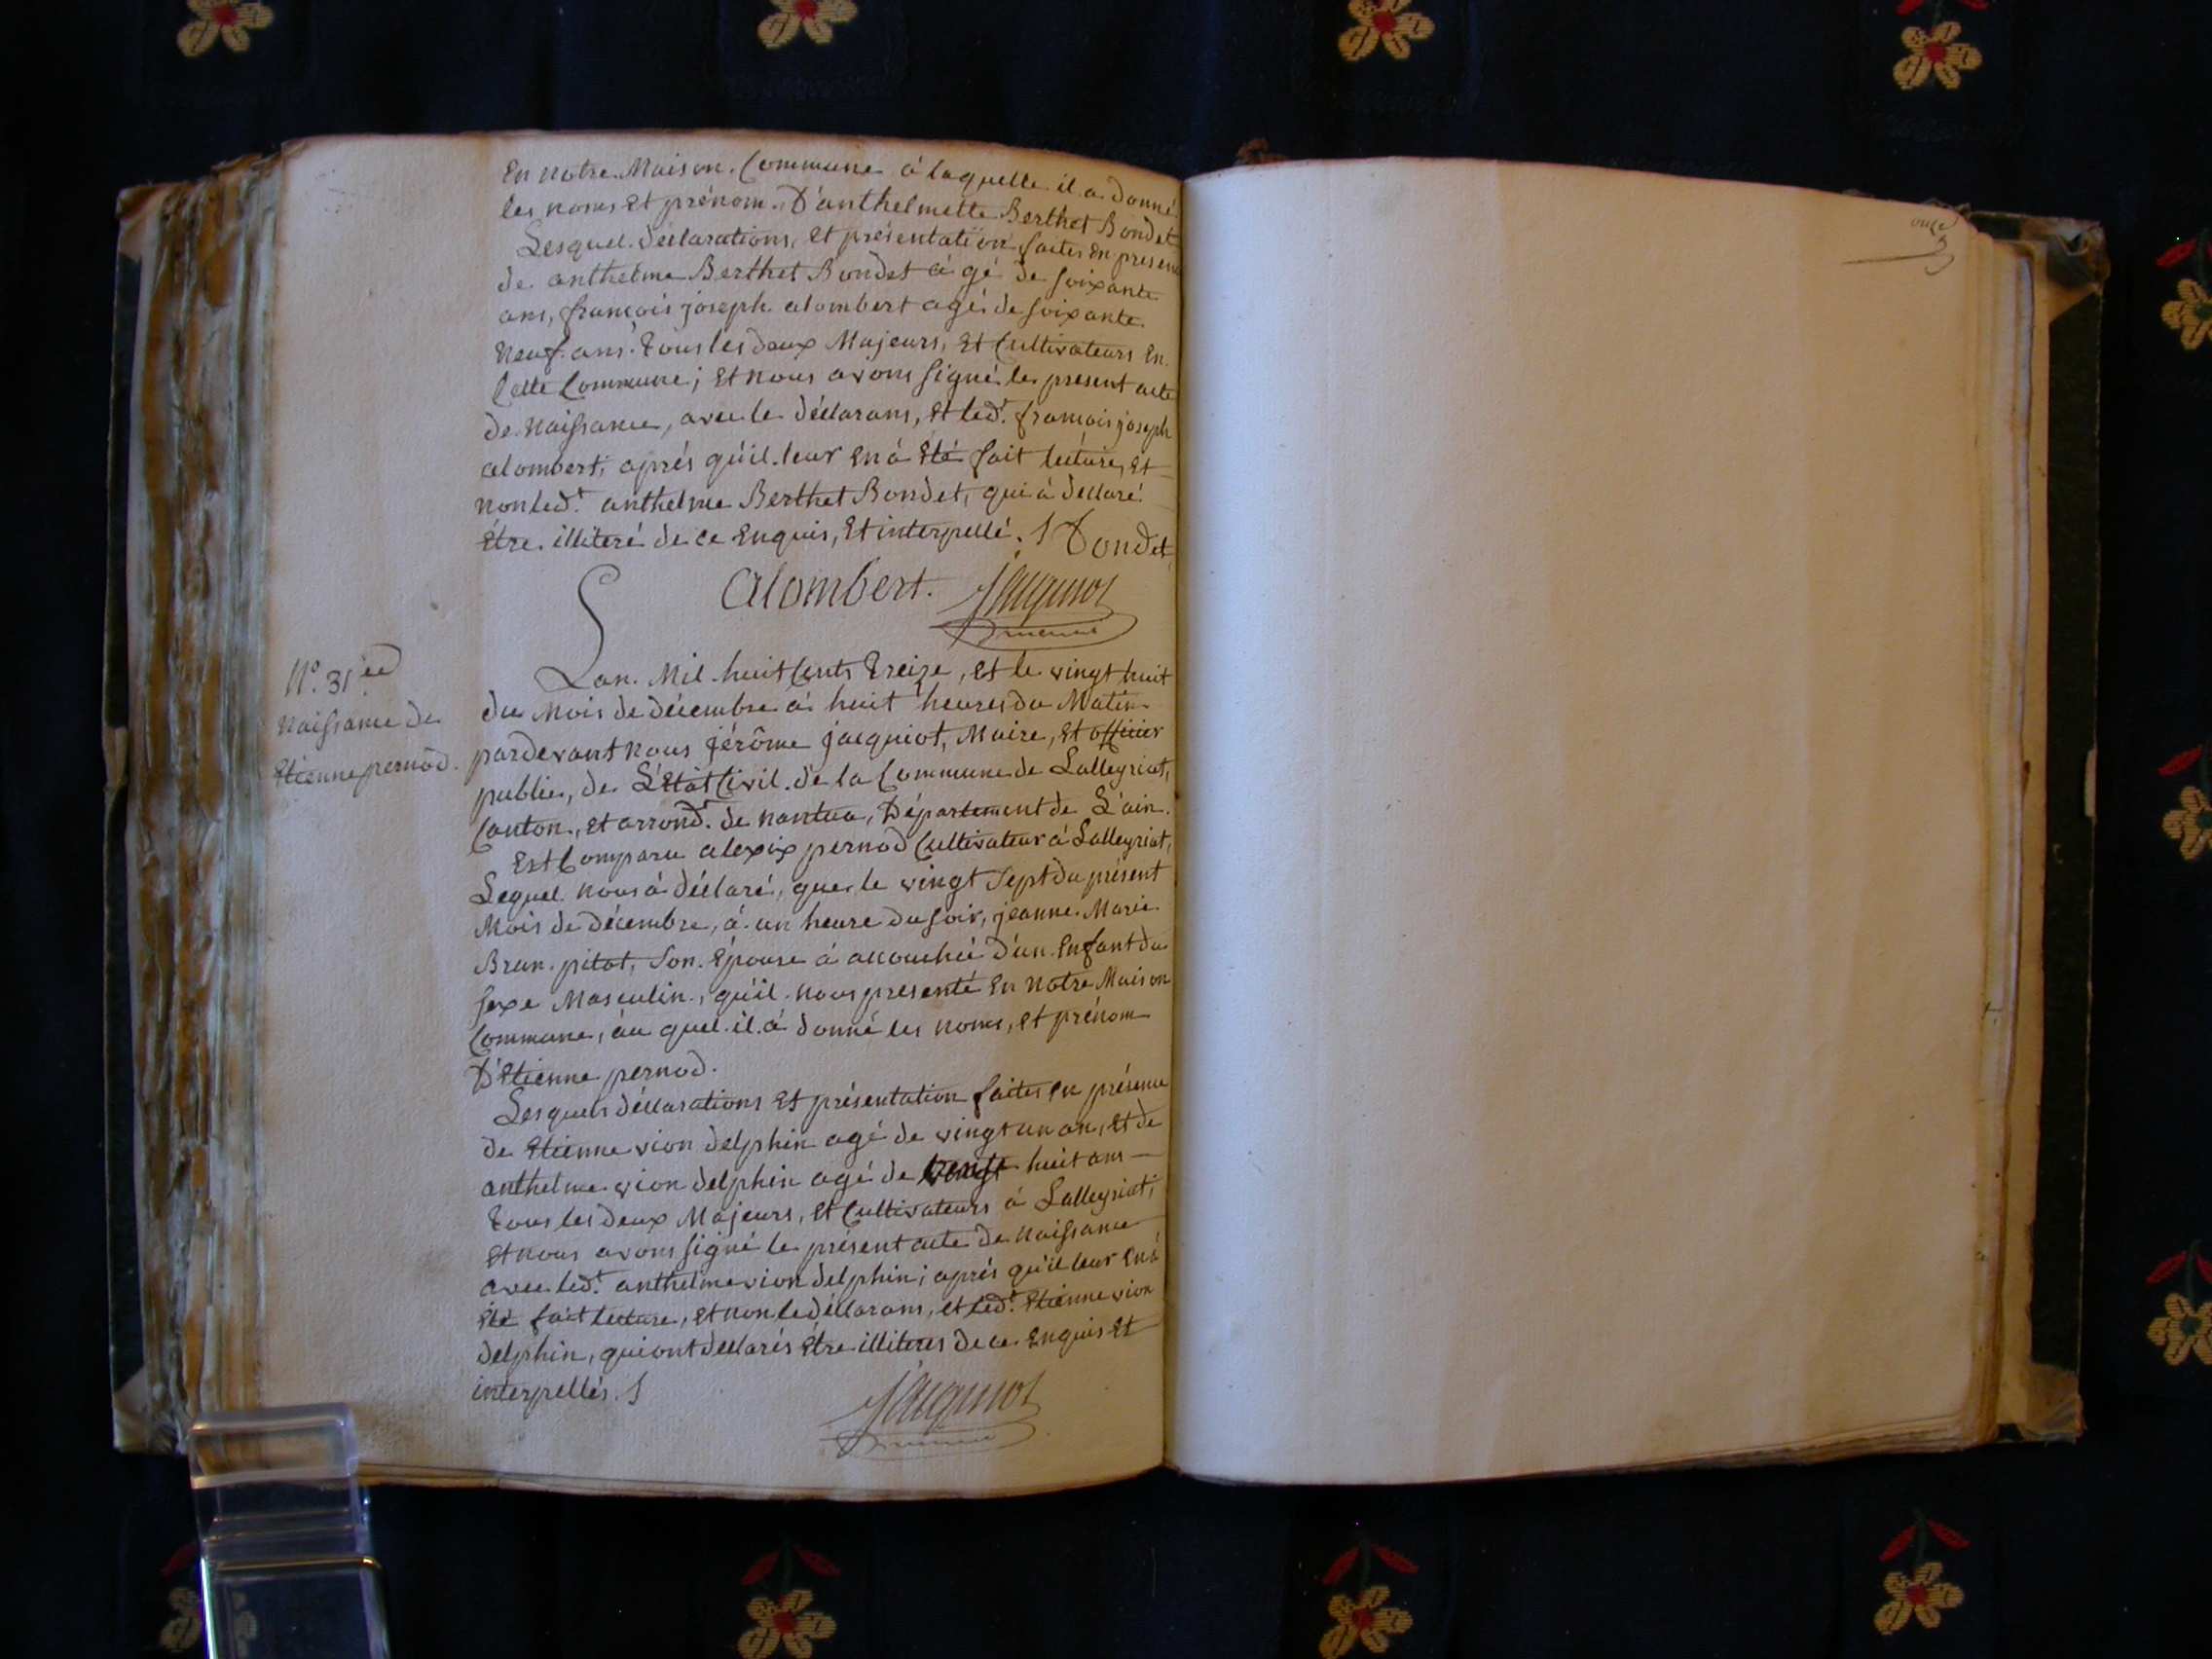 En notre Maison Commune à laquelle il a donné
les noms et prénom D'anthelmette Berthet Bondet
Lesquel déclarations, et présentation faites en presen
de anthelme Berthet Bondet agé de soixante
ans, françois joseph alombert agé de soixante
neuf ans. tous les deux Majeurs, et Cultivateurs en
Cette Commune; et nous avons signé le present acte
de Naissance, avec le déclarans, et led.t françois joseph
alombert, aprés qu'il leur en à été fait lecture, et
non led.t anthelme Berthet Bondet, qui à déclaré
être illiteré de ce Enquis, Et interpellé.
Alombert. Jacquiot
maire
N.o 31
Naissance de
Etienne pernod.
Lan Mil huit Cents treize, et le vingt huit
du Mois de décembre à huit heures du Matin
pardevant nous jérôme jacquiot, Maire, et officier
public, de L'état Civil de la Commune de Lalleyriat,
Canton, et arrond.t de nantua, Département de L'ain.
Est Comparu alexix pernod Cultivateur à Lalleyriat,
Lequel nous à déclaré, que le vingt sept du présent
Mois de décembre, à un heure du soir, jeanne Marie
Brun pitot, son Épouse à accouchée d'un Enfant du
sexe Masculin, qu'il nous presenté en notre Maison
Commune, au quel il à donné les noms, et prénom
D'Etienne pernod.
Lesquels déclarations et présentation faites en présence
de Etienne vion delphin agé de vingt un an, et de
anthelme vion delphin agé de huit ans
tous les deux Majeurs, et Cultivateurs à Lalleyriat,
et nous avons signé le présent acte de naissance
avec led.t anthelme vion delphin; aprés qu'il leur en à
été fait lecture, et non le déclarans, et led.t Etienne vion
delphin, qui ont déclarés être illiteres de ce Enquis et
interpellés.
Jacquiot
maire
onze